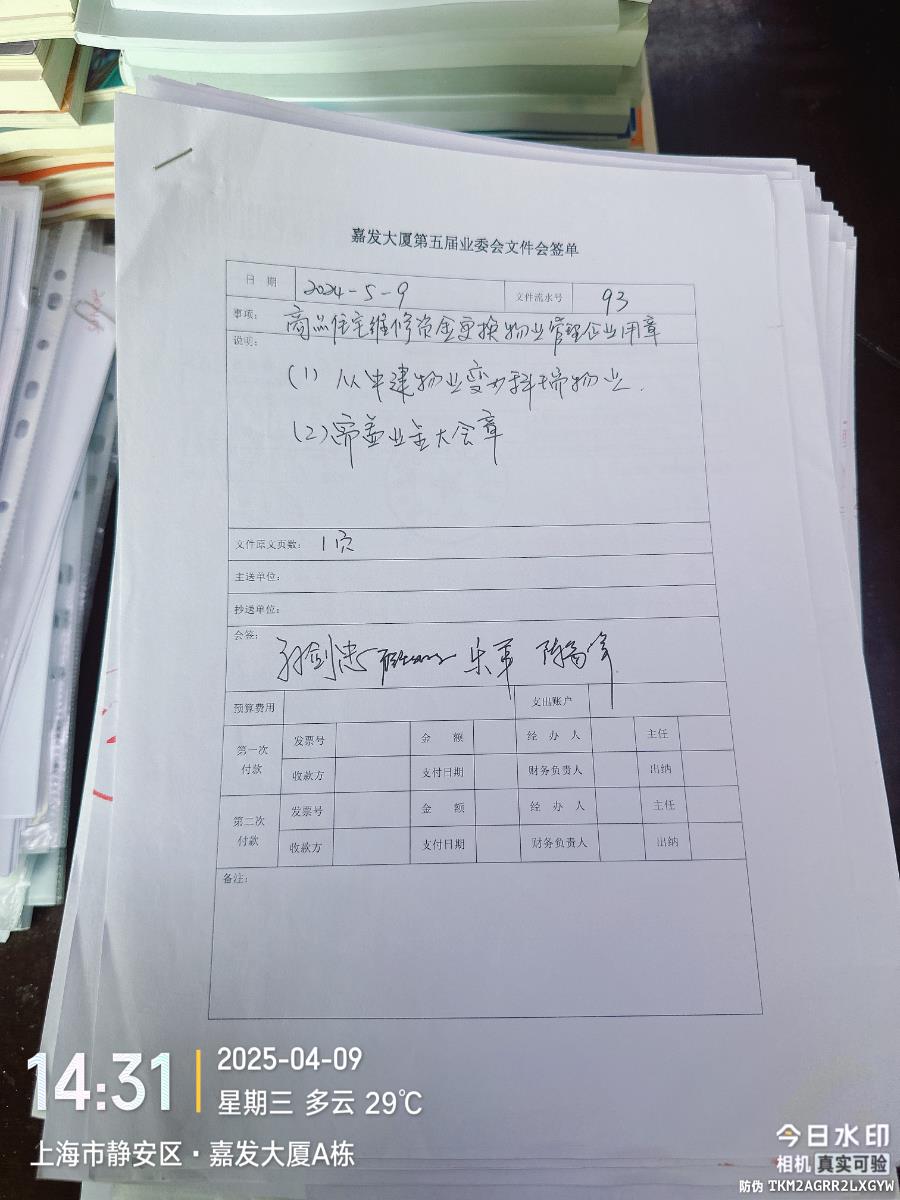 嘉发大厦第五届业委会文件会签单
日 期 2024-5-9 文件流水号 93
事项: 商品住宅维修资金更换物业管理企业用章
说明:
(1) 从中建物业变为科瑞物业.
(2) 需盖业主大会章
文件原文页数: 1页
主送单位:
抄送单位:
会签: 孙剑忠 朱军
预算费用 支出账户
第一次付款 发票号 金 额 经 办 人 主任
收款方 支付日期 财务负责人 出纳
第二次付款 发票号 金 额 经 办 人 主任
收款方 支付日期 财务负责人 出纳
备注:
14:31
2025-04-09
星期三 多云 29℃
上海市静安区·嘉发大厦A栋
今日水印
相机 真实可验
防伪 TKM2AGRR2LXGYW